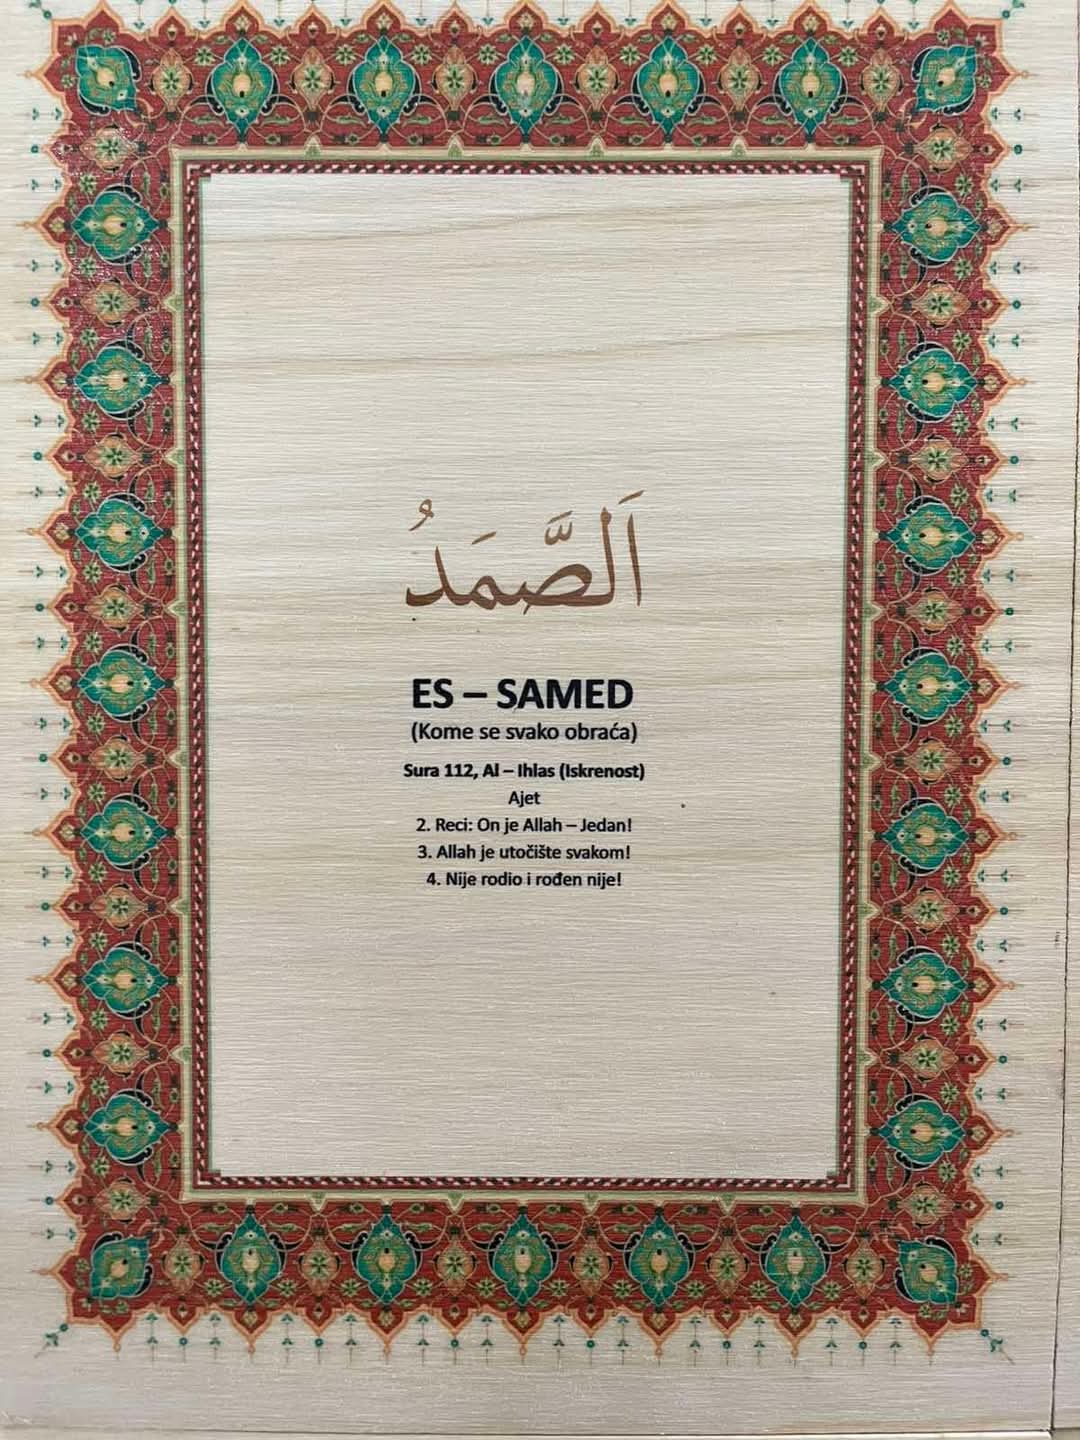 اَلصَّمَدُ
ES – SAMED
(Kome se svako obraća)
Sura 112, Al – Ihlas (Iskrenost)
Ajet
2. Reci: On je Allah – Jedan!
3. Allah je utočište svakom!
4. Nije rodio i rođen nije!